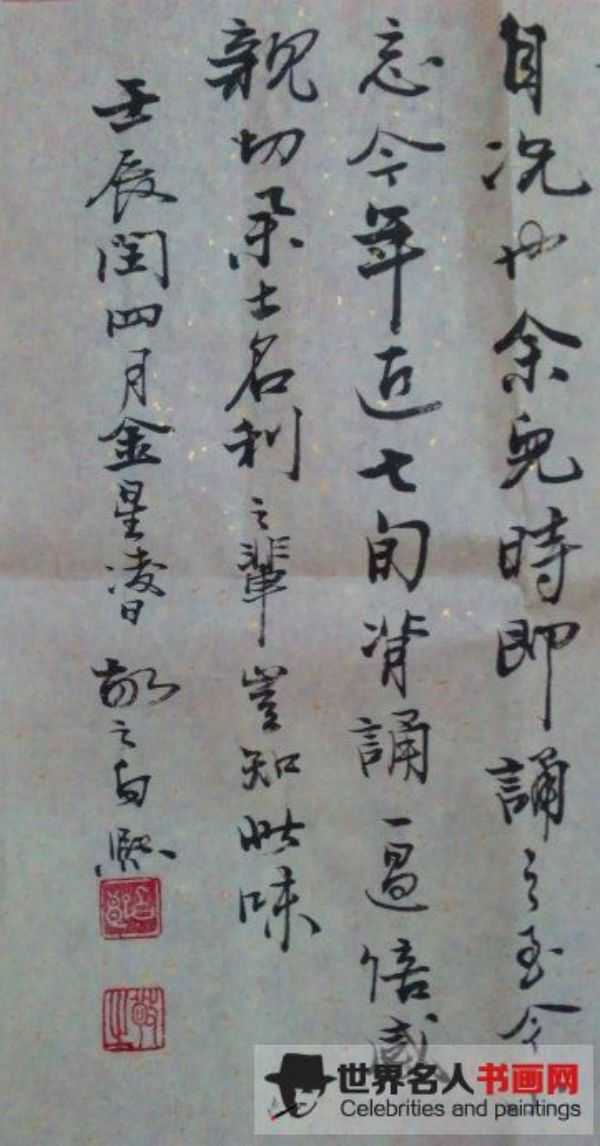 自况也余兒時即誦之至今
忘今年近七旬背誦一過倍感
親切士名利之輩豈知此味
壬辰閏四月金星凌日 敬之白
敬之
世界名人书画网
Celebrities and paintings